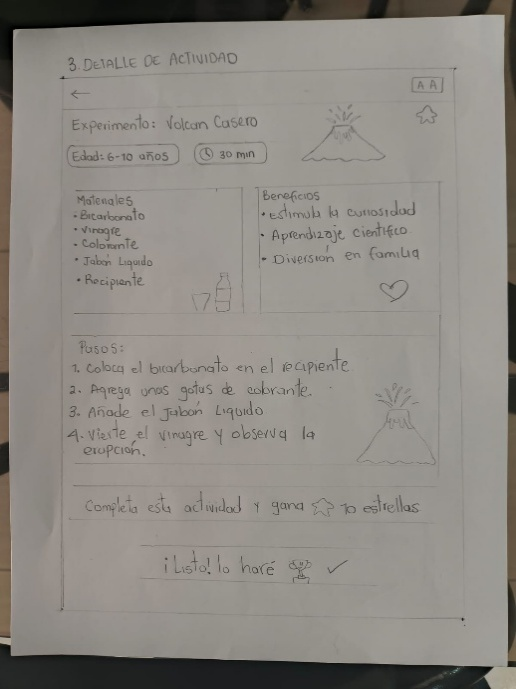 3. DETALLE DE ACTIVIDAD
←
AA
Experimento: Volcan Casero
Edad: 6-10 años
30 min
Materiales
• Bicarbonato
• Vinagre
• Colorante
• Jabón Liquido
• Recipiente
Beneficios
• Estimula la curiosidad
• Aprendizaje cientifico.
• Diversión en familia
Pasos:
1. Coloca el bicarbonato en el recipiente
2. Agrega unas gotas de colorante.
3. Añade el Jabón Liquido
4. Vierte el vinagre y observa la
erupción.
Completa esta actividad y gana 10 estrellas
¡Listo! lo haré ✓